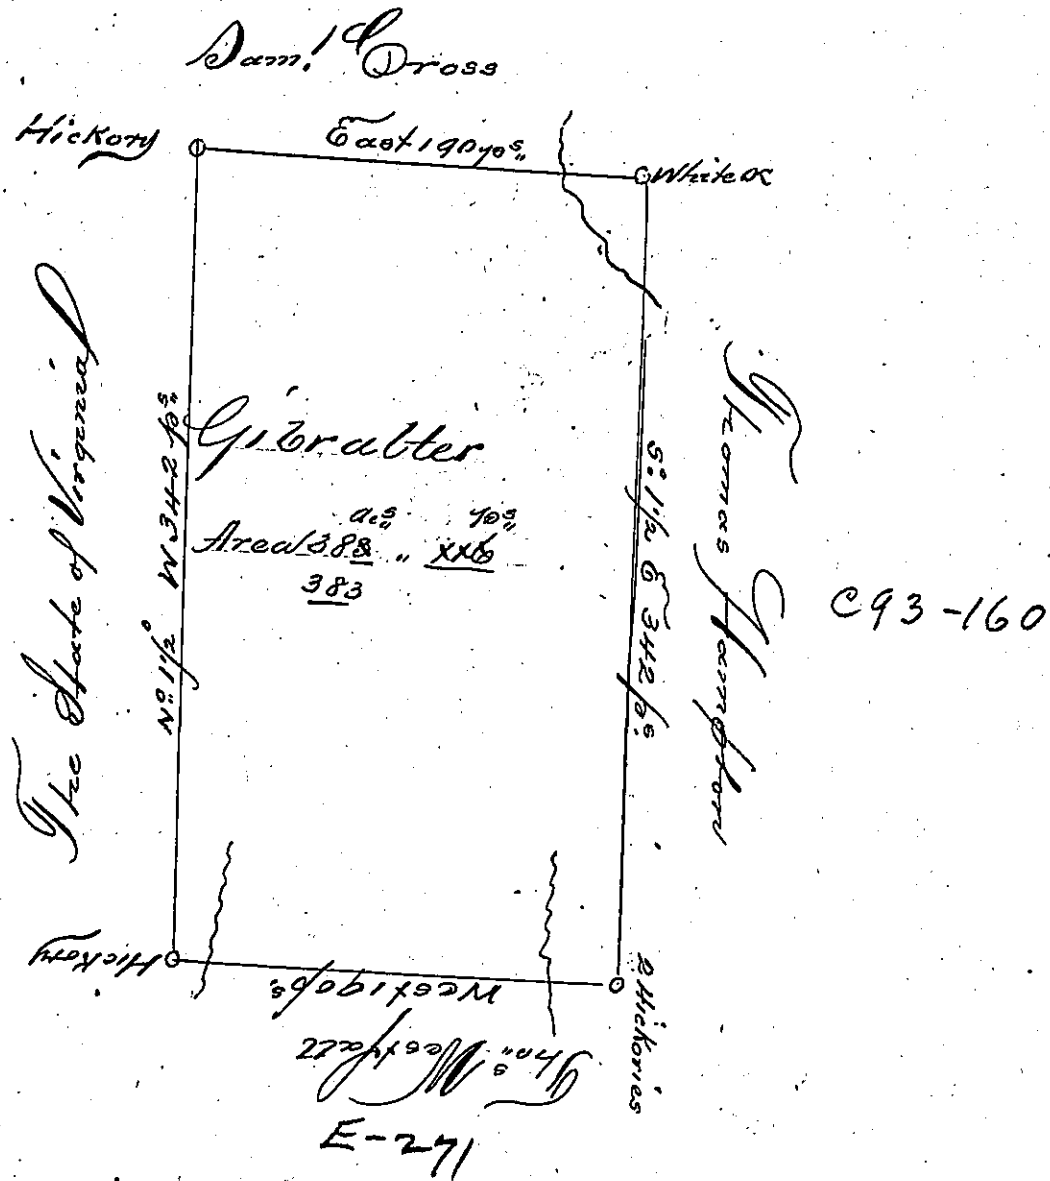 Sam.l Cross
Hickory
East 190 ps.
White O
The State of Virginia
N.o 1 1/2° W 342 ps.
Gibralter
acs. ps.
Area 383 „ xx6
383
S.o 1 1/2 E 342 ps.
Thomas Hampton
C93-160
Hickory
West 190 ps.
2 Hickories
Tho.s Westfall
E-271